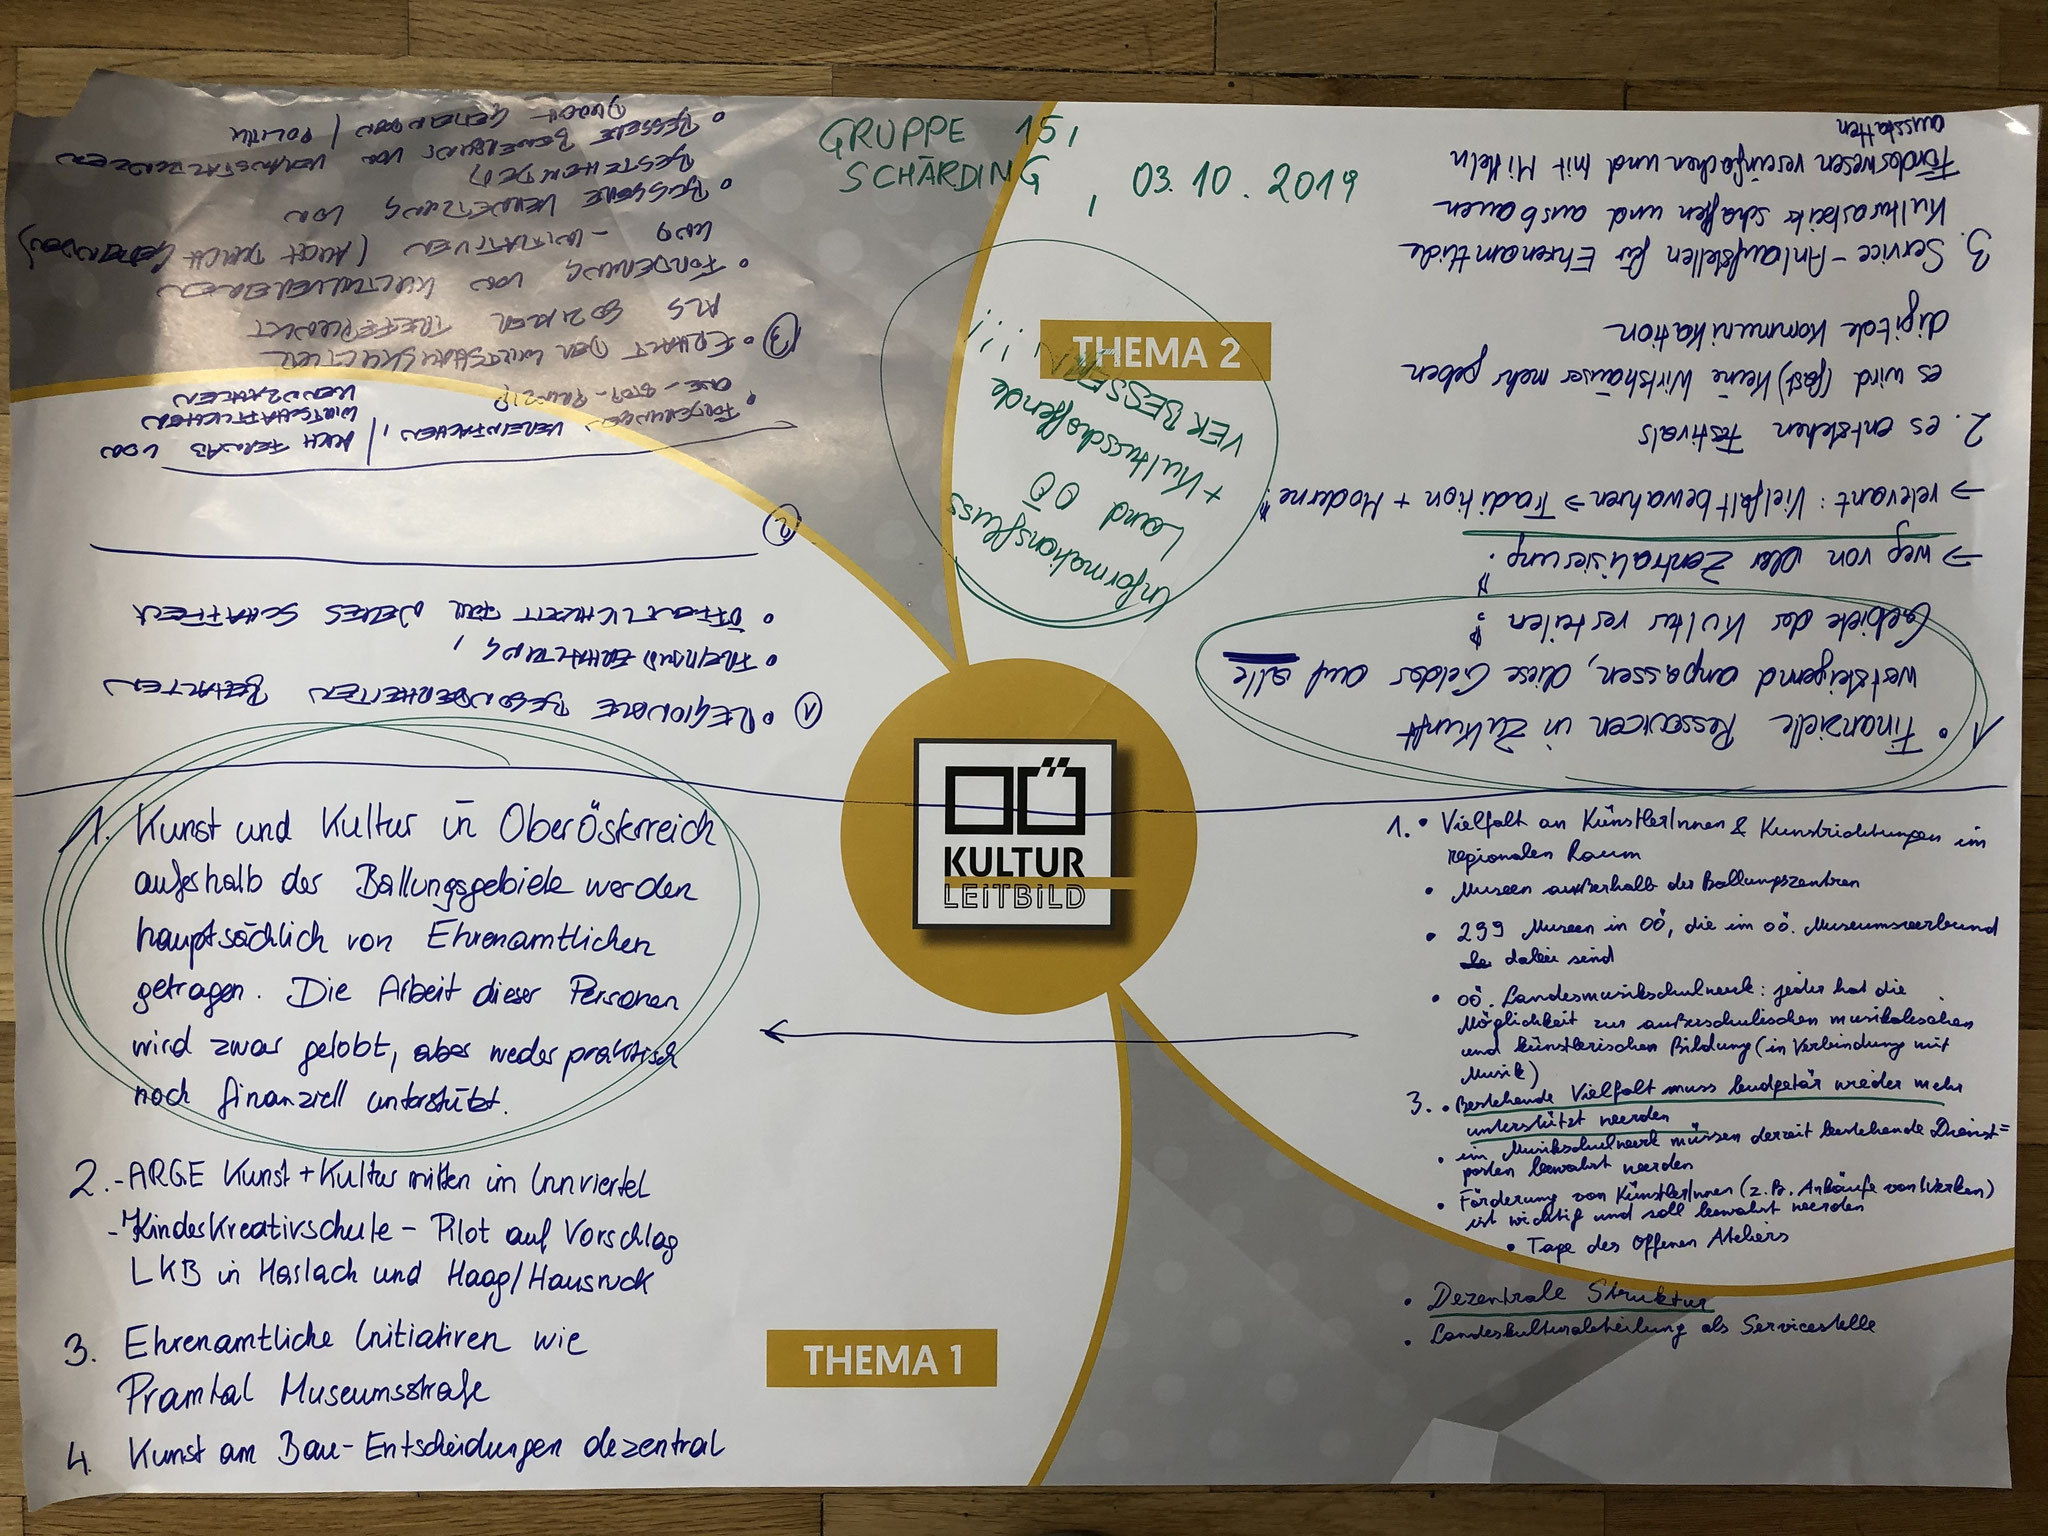 GRUPPE 15,
SCHÄRDING, 03.10.2019
THEMA 2
Informationsfluss
Land OÖ
+ Kulturschaffende
VERBESSERN!!!
1. • Finanzielle Ressourcen in Zukunft
wertsteigernd anpassen, diese Gelder auf alle
Gebiete der Kultur verteilen!
→ weg von der Zentralisierung!
→ relevant: Vielfalt bewahren → Tradition + Moderne!
2. es entstehen Festivals
es wird (fast) keine Wirtshäuser mehr geben
digitale Kommunikation
3. Service-Anlaufstellen für Ehrenamtliche
Kulturarbeit schaffen und ausbauen
Förderwesen vereinfachen und mit Mitteln
ausstatten
① • REGIONALE BESONDERHEITEN BEHALTEN
•
• ÖFFENTLICHKEIT FÜR NEUES SCHAFFEN
②
• FÖRDERUNGEN VEREINFACHEN, / AUCH FERNAB VON
WIRTSCHAFTLICHEN
KENNZAHLEN
ONE-STOP-PRINZIP
③ • ERHALT DER WIRTSHAUSKULTUR
ALS SOZIALER TREFFPUNKT
• FÖRDERUNG VON KULTURVEREINEN
UND -INITIATIVEN (AUCH DURCH GEMEINDEN)
• BESSERE VERNETZUNG VON
BESTEHENDEN VERANSTALTUNGEN
• BESSERE BEWERBUNG VON
DURCH GEMEINDEN / POLITIK
OÖ
KULTUR
LEiTBiLD
1. Kunst und Kultur in Oberösterreich
außerhalb der Ballungsgebiete werden
hauptsächlich von Ehrenamtlichen
getragen. Die Arbeit dieser Personen
wird zwar gelobt, aber weder praktisch
noch finanziell unterstützt.
2. - ARGE Kunst + Kultur mitten im Innviertel
- Kinderkreativschule - Pilot auf Vorschlag
LKB in Haslach und Haag/Hausruck
3. Ehrenamtliche Initiativen wie
Pramtal Museumsstraße
4. Kunst am Bau-Entscheidungen dezentral
THEMA 1
1. • Vielfalt an KünstlerInnen & Kunstrichtungen im
regionalen Raum
• Museen außerhalb der Ballungszentren
• 299 Museen in OÖ, die im oö. Museumsverbund
dabei sind
• oö. Landesmusikschulwerk: jeder hat die
Möglichkeit zur außerschulischen musikalischen
und künstlerischen Bildung (in Verbindung mit
Musik)
3. • Bestehende Vielfalt muss budgetär wieder mehr
unterstützt werden
• im Musikschulwerk müssen derzeit bestehende Dienst=
posten bewahrt werden
• Förderung von KünstlerInnen (z.B. Ankäufe von Werken)
ist wichtig und soll bewahrt werden
• Tage des Offenen Ateliers
• Dezentrale Struktur
• Landeskulturabteilung als Servicestelle